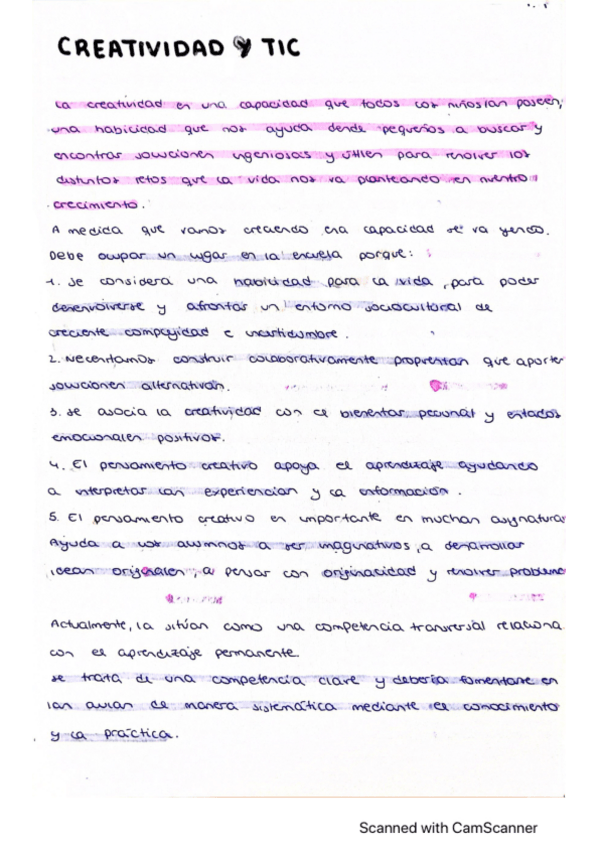 CREATIVIDAD Y TIC
La creatividad es una capacidad que todos los niños/as poseen,
una habilidad que nos ayuda desde pequeños a buscar y
encontrar soluciones ingeniosas y útiles para resolver los
distintos retos que la vida nos va planteando en nuestro
crecimiento.
A medida que vamos creciendo esa capacidad se va yendo.
Debe ocupar un lugar en la escuela porque:
1. Se considera una habilidad para la vida, para poder
desenvolverse y afrontar un entorno sociocultural de
creciente complejidad e incertidumbre.
2. Necesitamos construir colaborativamente propuestas que aporten
soluciones alternativas.
3. Se asocia la creatividad con el bienestar personal y estados
emocionales positivos.
4. El pensamiento creativo apoya el aprendizaje ayudando
a interpretar las experiencias y la información.
5. El pensamiento creativo es importante en muchas asignaturas
Ayuda a los alumnos a ser imaginativos, a desarrollar
ideas originales, a pensar con originalidad y resolver problema
Actualmente, la sitúan como una competencia transversal relaciona
con el aprendizaje permanente.
Se trata de una competencia clave y debería fomentarse en
las aulas de manera sistemática mediante el conocimiento
y la práctica.
Scanned with CamScanner